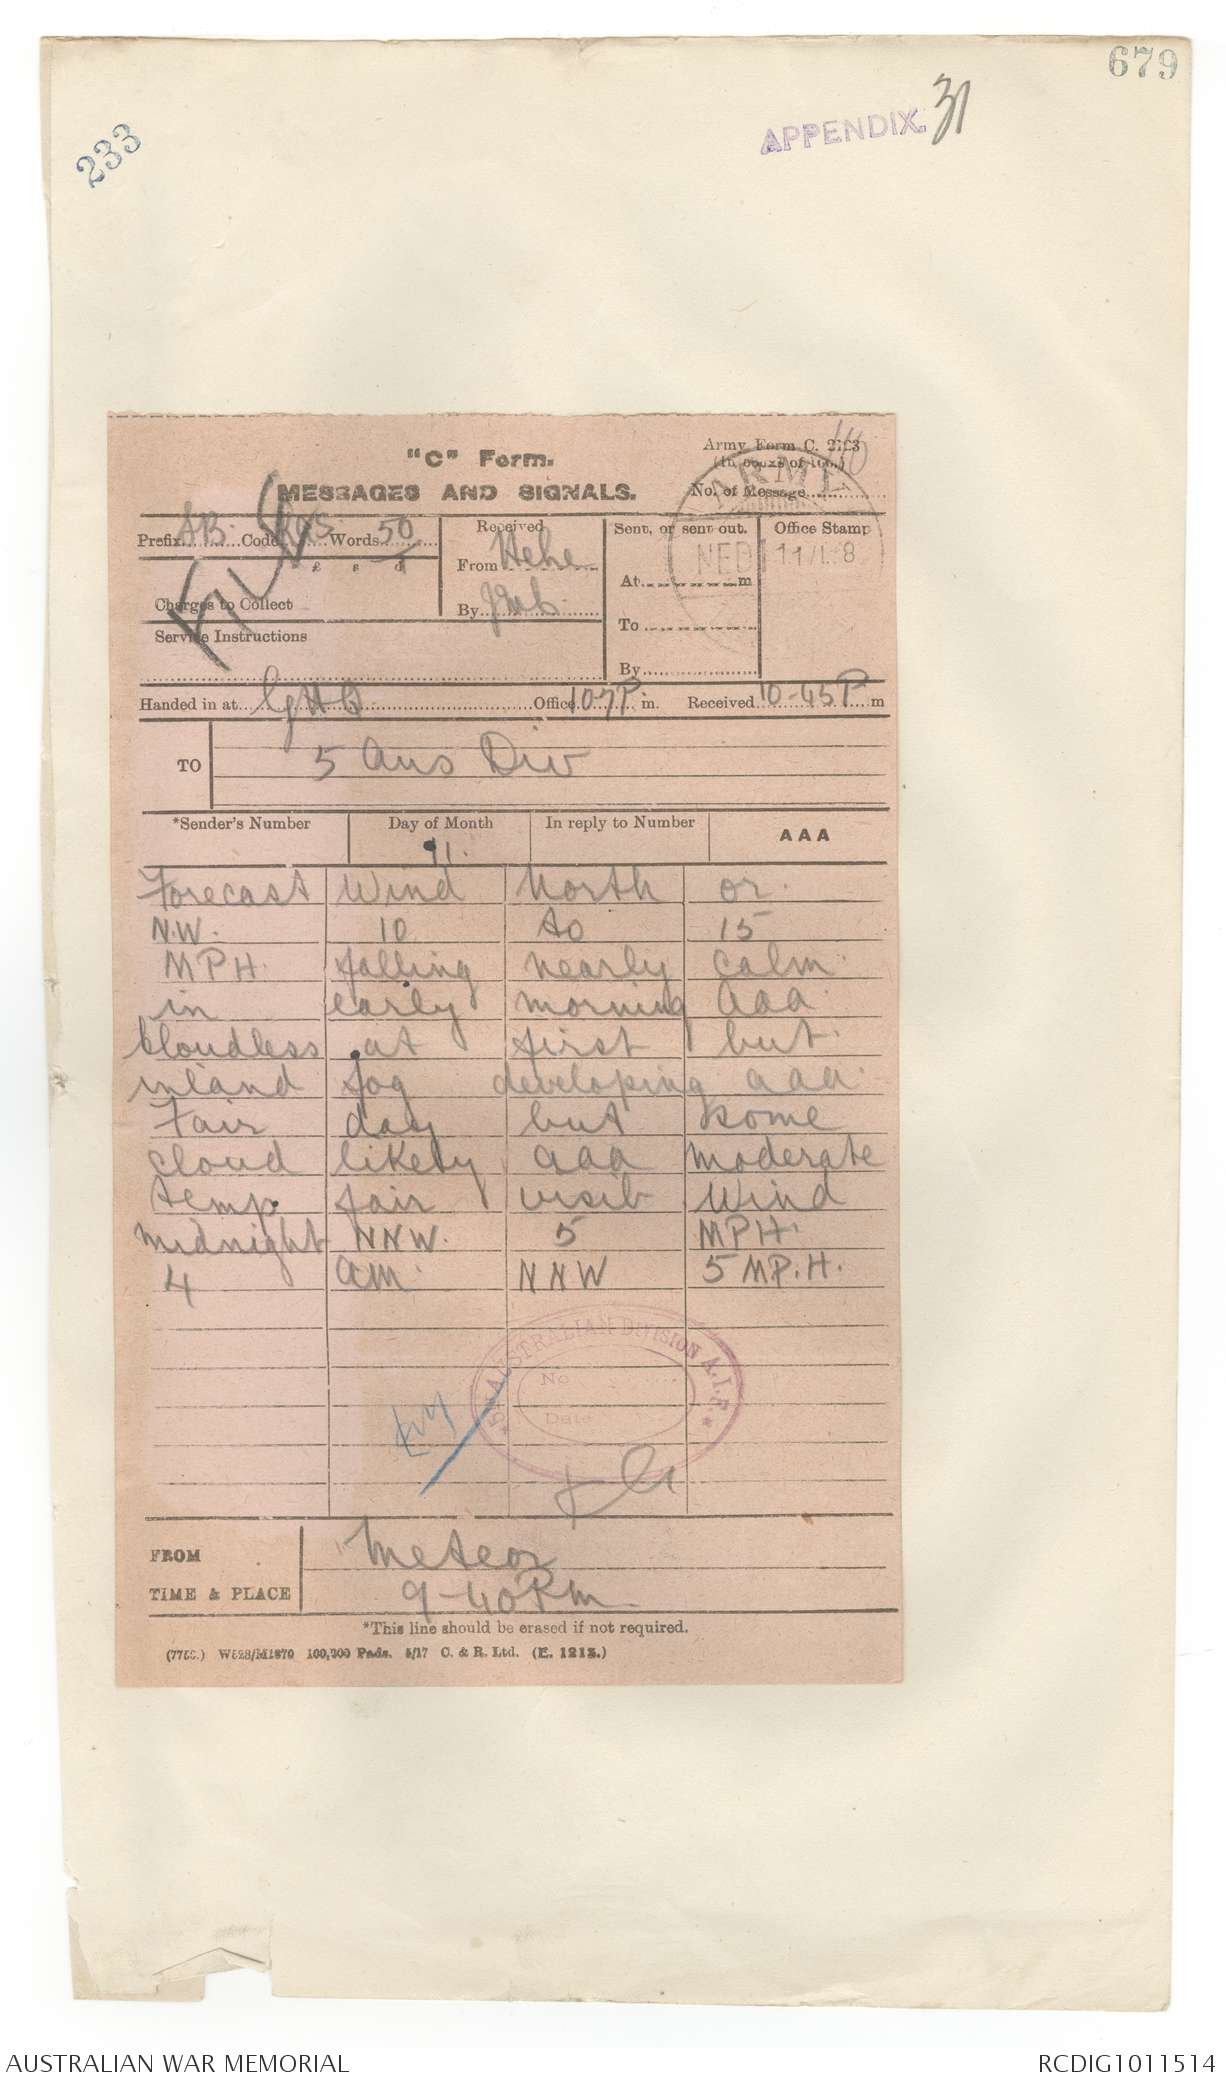 679
233
APPENDIX. 31
"C" Form.
MESSAGES AND SIGNALS.
Army Form C. 2123
(In books of 100.)
No. of Message
Prefix AB. Code Words 50
£ s d
Charges to Collect
Service Instructions
Received
From
By
Sent, or sent out.
At m
To
By
Office Stamp
ARMY
Handed in at GHQ Office 10.7 P. m. Received 10-45 P m
TO 5 Aus Div
*Sender's Number Day of Month In reply to Number AAA
11.
Forecast Wind North or
N.W. 10 to 15
MPH. falling nearly calm
in early morning aaa
Cloudless at first but
inland fog developing aaa
Fair day but some
cloud likely aaa moderate
temp. fair visib Wind
midnight NNW. 5 MPH.
4 am NNW 5 M.P.H.
5TH AUSTRALIAN DIVISION A.I.F.
No
Date
FROM Meteor
TIME & PLACE 9-40 Pm
*This line should be erased if not required.
100,000 Pads. 5/17 C. & R. Ltd. (E. 1213.)
AUSTRALIAN WAR MEMORIAL
RCDIG1011514